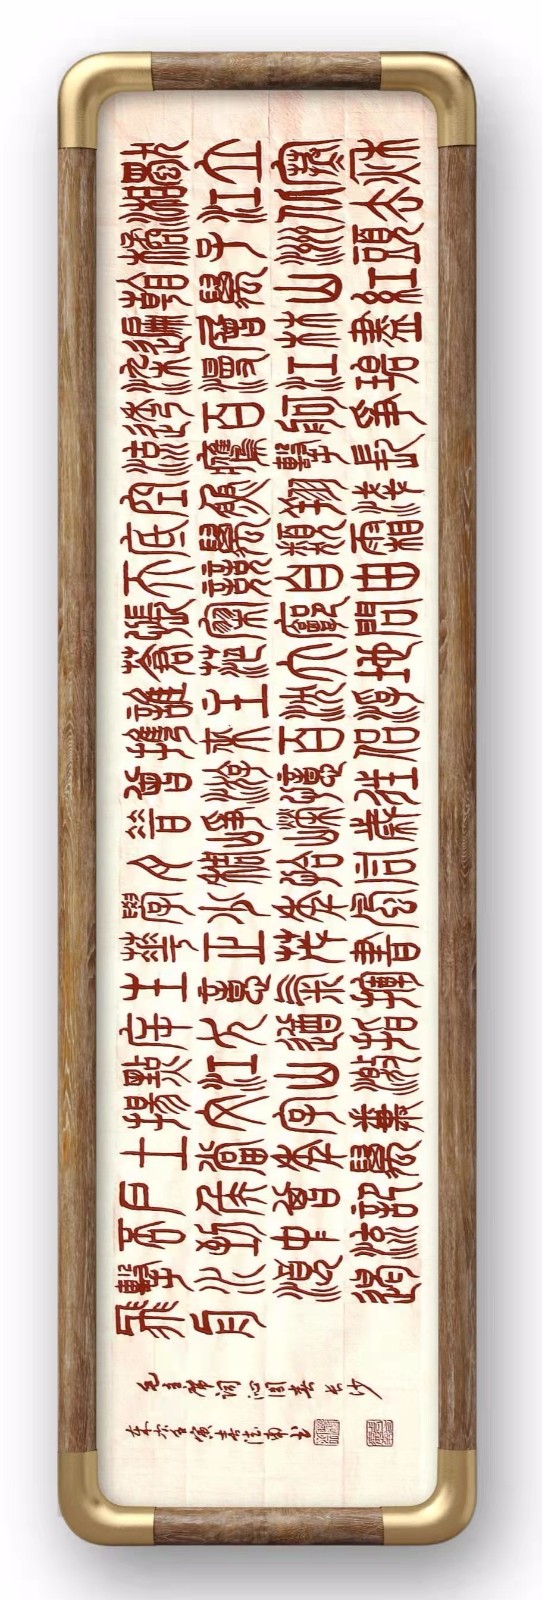 獨立寒秋
湘江北去
橘子洲頭
看萬山紅
遍層林盡
染漫江碧
透百舸爭
流鷹擊長
空魚翔淺
底萬類霜
天競自由
悵寥廓問
蒼茫大地
誰主沉浮
攜來百侶
曾游憶往
昔崢嶸歲
月稠恰同
學少年風
華正茂書
生意氣揮
斥方遒指
點江山激
揚文字糞
土當年萬
戶侯曾記
否到中流
擊水浪遏
飛舟
毛主席詞沁園春長沙